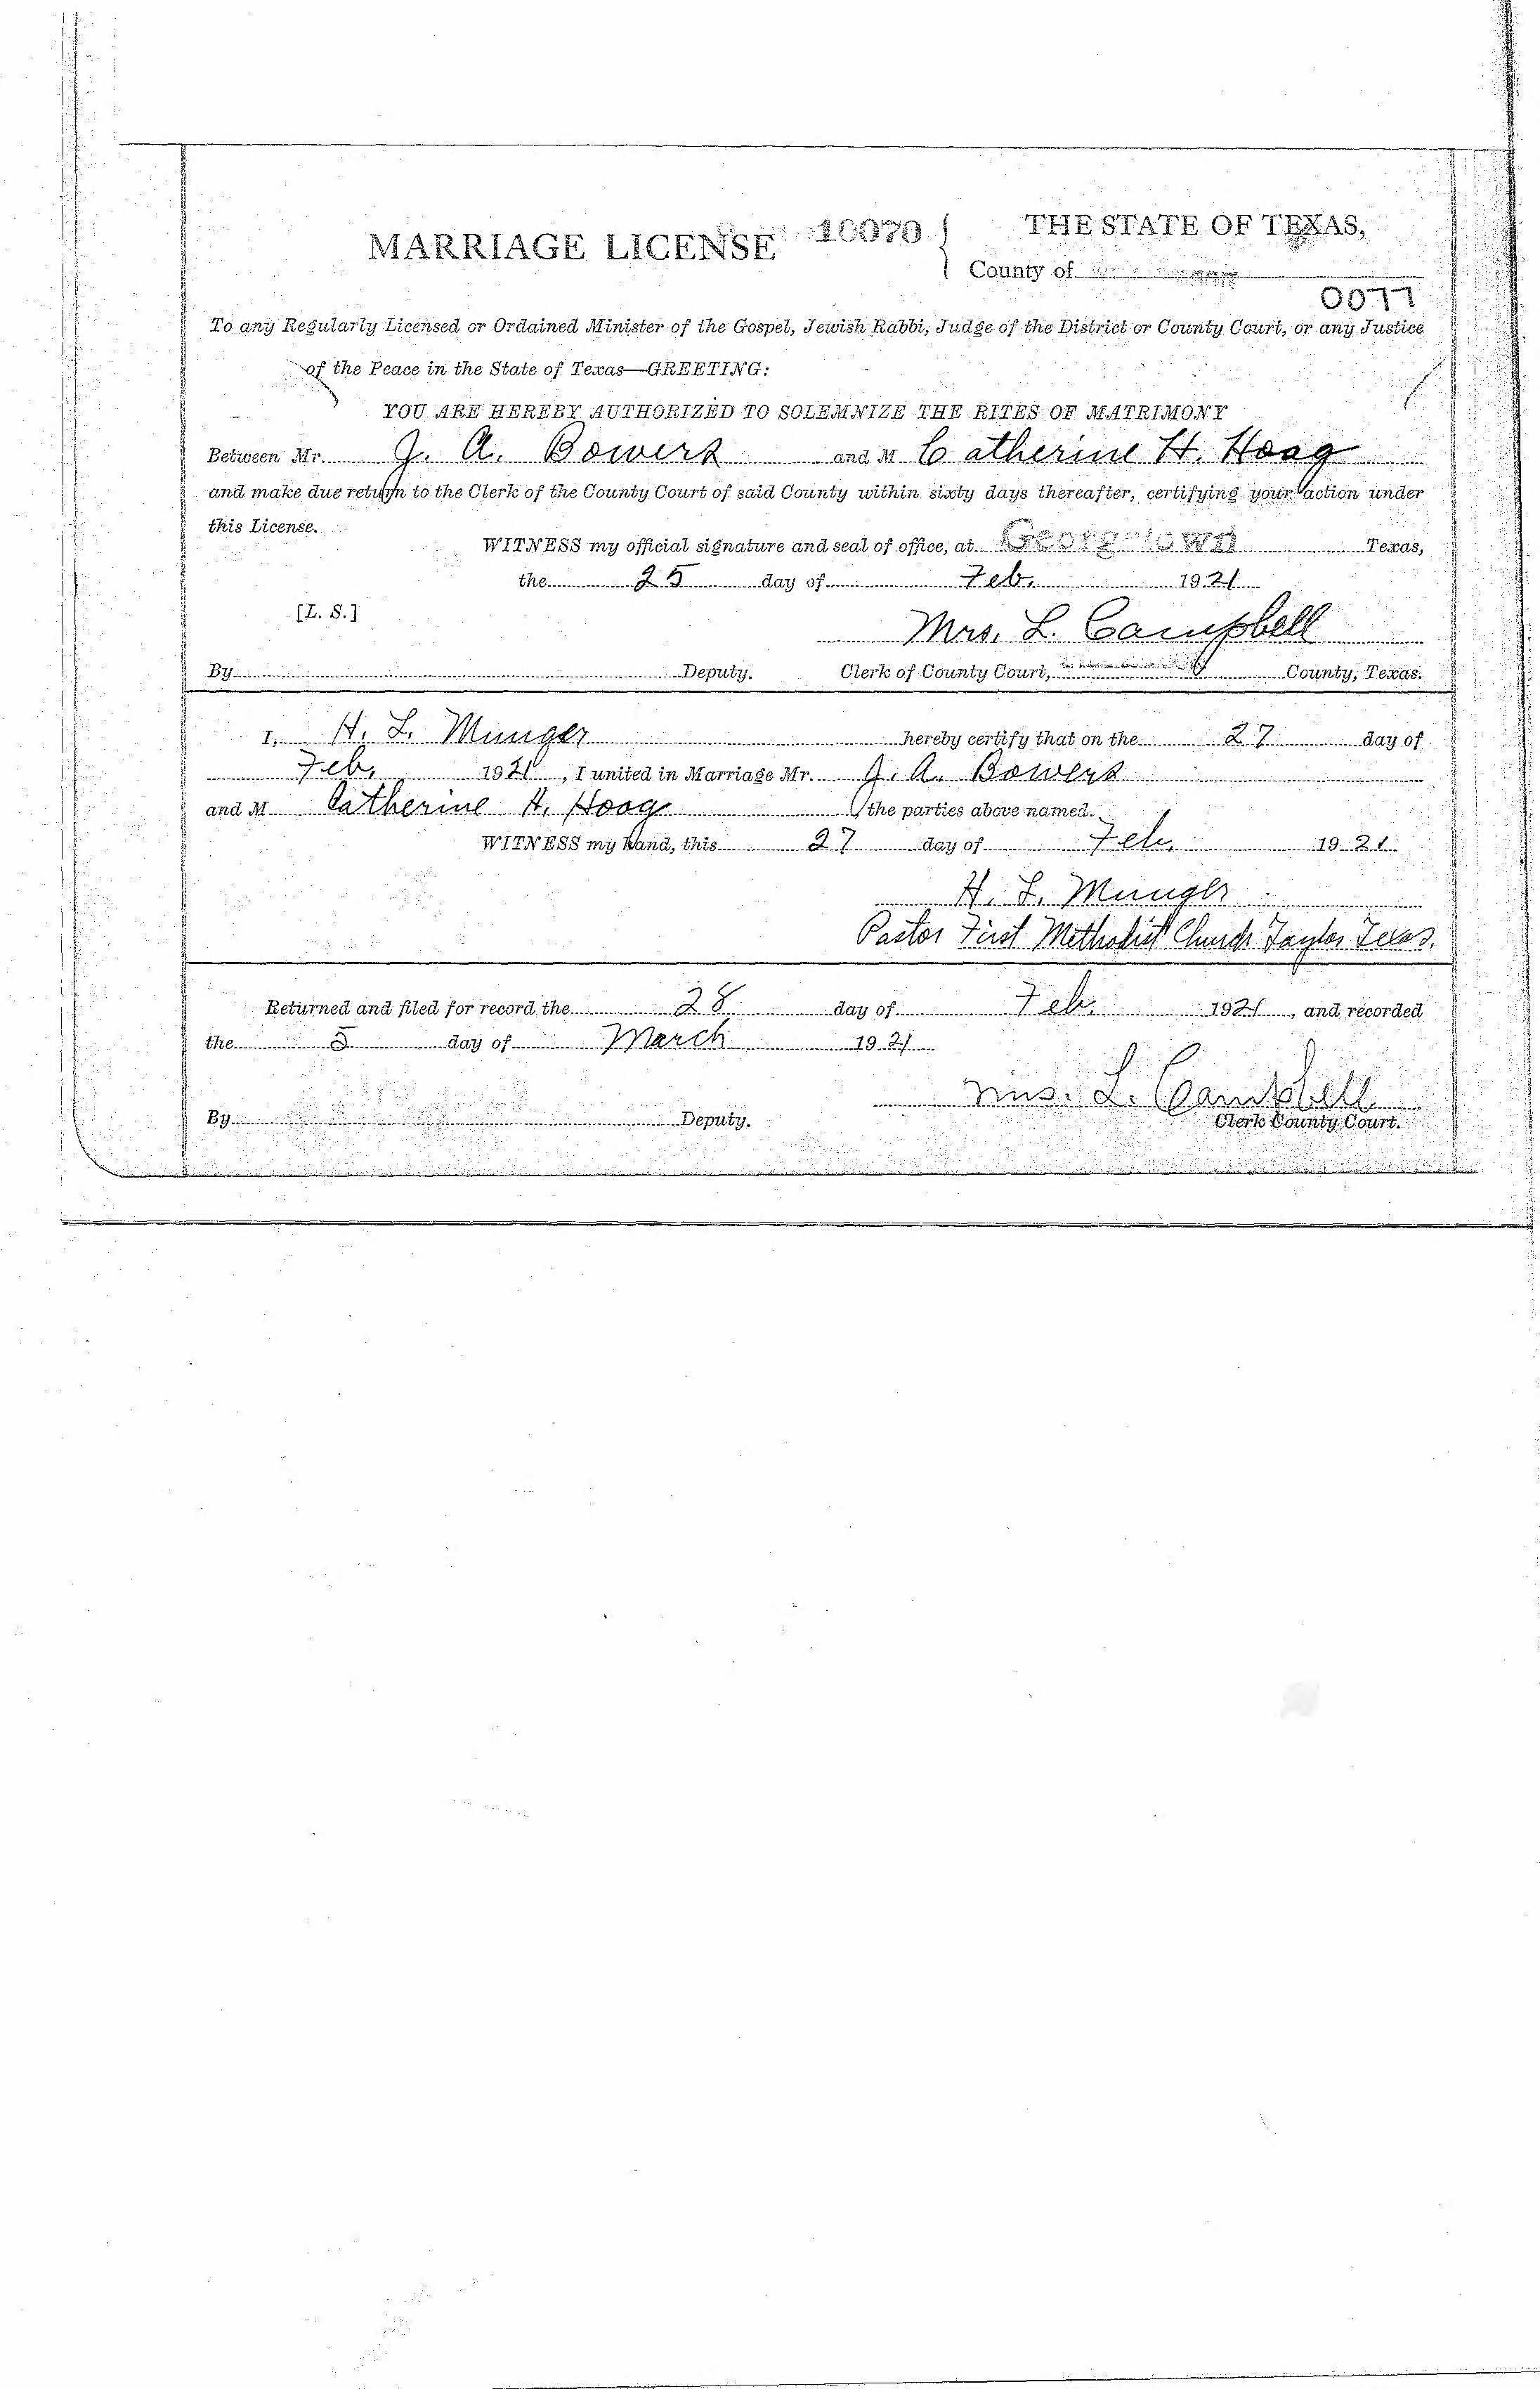 MARRIAGE LICENSE 10070 THE STATE OF TEXAS,
County of
0077
To any Regularly Licensed or Ordained Minister of the Gospel, Jewish Rabbi, Judge of the District or County Court, or any Justice
of the Peace in the State of Texas—GREETING:
YOU ARE HEREBY AUTHORIZED TO SOLEMNIZE THE RITES OF MATRIMONY
Between Mr. J. A. Bowers and M Catherine H. Hoag
and make due return to the Clerk of the County Court of said County within sixty days thereafter, certifying your action under
this License.
WITNESS my official signature and seal of office, at Georgetown Texas,
the 25 day of Feb. 1921
[L. S.]
Mrs. L. Campbell
By Deputy. Clerk of County Court, County, Texas.
I, H. L. Munger hereby certify that on the 27 day of
Feb. 1921, I united in Marriage Mr. J. A. Bowers
and M Catherine H. Hoag the parties above named.
WITNESS my hand, this 27 day of Feb. 1921
H. L. Munger
Pastor First Methodist Church Taylor Texas.
Returned and filed for record the 28 day of Feb. 1921, and recorded
the 5 day of March 1921
Mrs. L. Campbell
By Deputy. Clerk County Court.